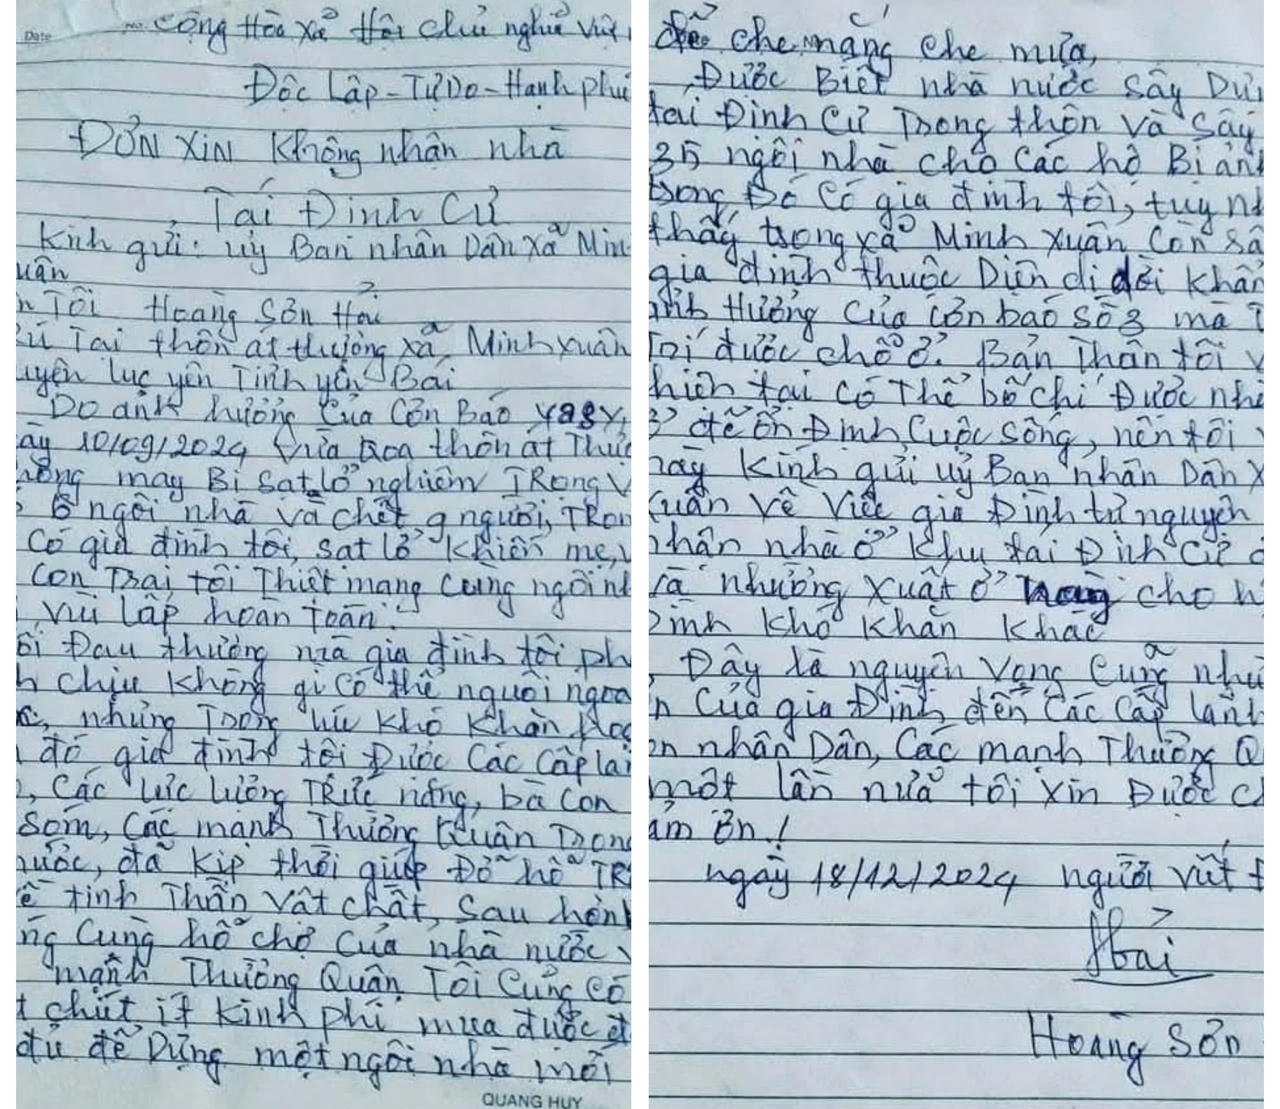 Date No. Cộng Hòa Xã Hội Chủ nghĩa Việt
Độc Lập - Tự Do - Hạnh phú
ĐƠN XIN Không nhận nhà
Tái Định Cư
Kính gửi: uỷ Ban nhân Dân xã Min
uân
n Tôi Hoàng Sơn Hải
ú Tại thôn át thượng xã Minh xuân
uyện lục yên Tỉnh yên Bái
Do ảnh hưởng Của Cơn Bão yagy,
ày 10/09/2024 vừa qoa thôn át Thượ
hông may Bị sạt lở nghiêm TRọng v
6 ngôi nhà và chết 9 người, TRon
Có gia đình tôi, sạt lở khiến mẹ, v
Con Trai tôi Thiệt mạng Cùng ngôi nh
vùi lấp hoàn Toàn.
ỗi Đau thương mà gia đình tôi ph
h chịu không gì có thể nguôi ngoa
nhưng Trong lúc khó khăn
đó gia đình tôi Được Các Cấp lã
, Các lực lượng TRức năng, bà con
sóm, Các mạnh Thường Quân Trong
nước, đã kịp thời giúp Đỡ hỗ TR
ề tinh Thần Vật chất, Sau hơn
ng Cùng hỗ chợ của nhà nước v
mạnh Thường Quân Tôi Cũng Có
t chút ít kinh phí mua được đ
đủ để Dựng một ngôi nhà mới
QUANG HUY
để che nắng che mưa,
Được Biết nhà nước Sây Dự
tái Định Cư Trong thôn và Sây
35 ngôi nhà cho Các hộ Bị ản
trong Đó Có gia đình tôi, tuy nh
thấy trong xã Minh Xuân Còn
gia đình thuộc Diện di dời khẩn
ảnh Hưởng Của Cơn bão số 3 mà
được chỗ ở. Bản Thân tôi v
hiện tại có Thể bố chí Được nh
ở để ổn Định Cuộc Sống, nên tôi v
này Kính gửi uỷ Ban nhân Dân X
xuân về Việc gia Đình tự nguyện
nhận nhà ở Khu tái Định Cư
và nhường xuất ở này cho h
Đình Khó Khăn Khác
Đây là nguyện Vọng Cũng như
n Của gia Đình đến Các Cấp lãnh
ền nhân Dân, Các mạnh Thường Q
một lần nữa tôi xin Được c
ảm ơn!
ngày 18/12/2024 người viết đ
Hải
Hoàng Sơn